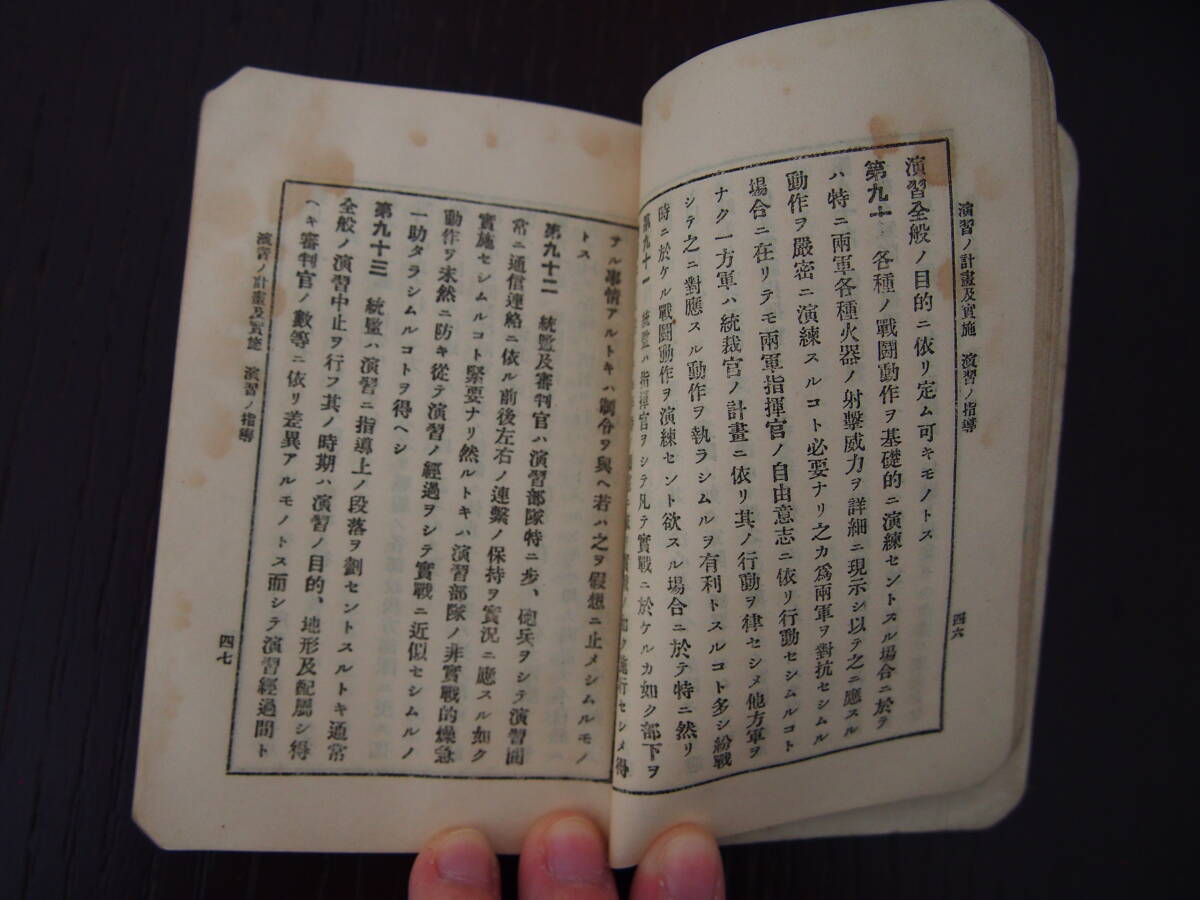 演習ノ計畫及實施 演習ノ指導
四六
演習全般ノ目的ニ依リ定ム可キモノトス
第九十 各種ノ戰鬪動作ヲ基礎的ニ演練セントスル場合ニ於テ
ハ特ニ兩軍各種火器ノ射擊威力ヲ詳細ニ現示シ以テ之ニ應スル
動作ヲ嚴密ニ演練スルコト必要ナリ之カ爲兩軍ヲ對抗セシムル
場合ニ在リテモ兩軍指揮官ノ自由意志ニ依リ行動セシムルコト
ナク一方軍ハ統裁官ノ計畫ニ依リ其ノ行動ヲ律セシメ他方軍ヲ
シテ之ニ對應スル動作ヲ執ラシムルヲ有利トスルコト多シ紛戰
時ニ於ケル戰鬪動作ヲ演練セント欲スル場合ニ於テ特ニ然リ
第九十一 統監ハ指揮官ヲシテ凡テ實戰ニ於ケルカ如ク部下ヲ
行セシメ得
サル事情アルトキハ制令ヲ與ヘ若ハ之ヲ假想ニ止メシムルモノ
トス
第九十二 統監及審判官ハ演習部隊特ニ步、砲兵ヲシテ演習間
常ニ通信連絡ニ依ル前後左右ノ連繫ノ保持ヲ實況ニ應スル如ク
實施セシムルコト緊要ナリ然ルトキハ演習部隊ノ非實戰的燥急
動作ヲ未然ニ防キ從テ演習ノ經過ヲシテ實戰ニ近似セシムルノ
一助タラシムルコトヲ得ヘシ
第九十三 統監ハ演習ニ指導上ノ段落ヲ劃セントスルトキ通常
全般ノ演習中止ヲ行フ其ノ時期ハ演習ノ目的、地形及配屬シ得
ヘキ審判官ノ數等ニ依リ差異アルモノトス而シテ演習經過間ト
演習ノ計畫及實施 演習ノ指導
四七